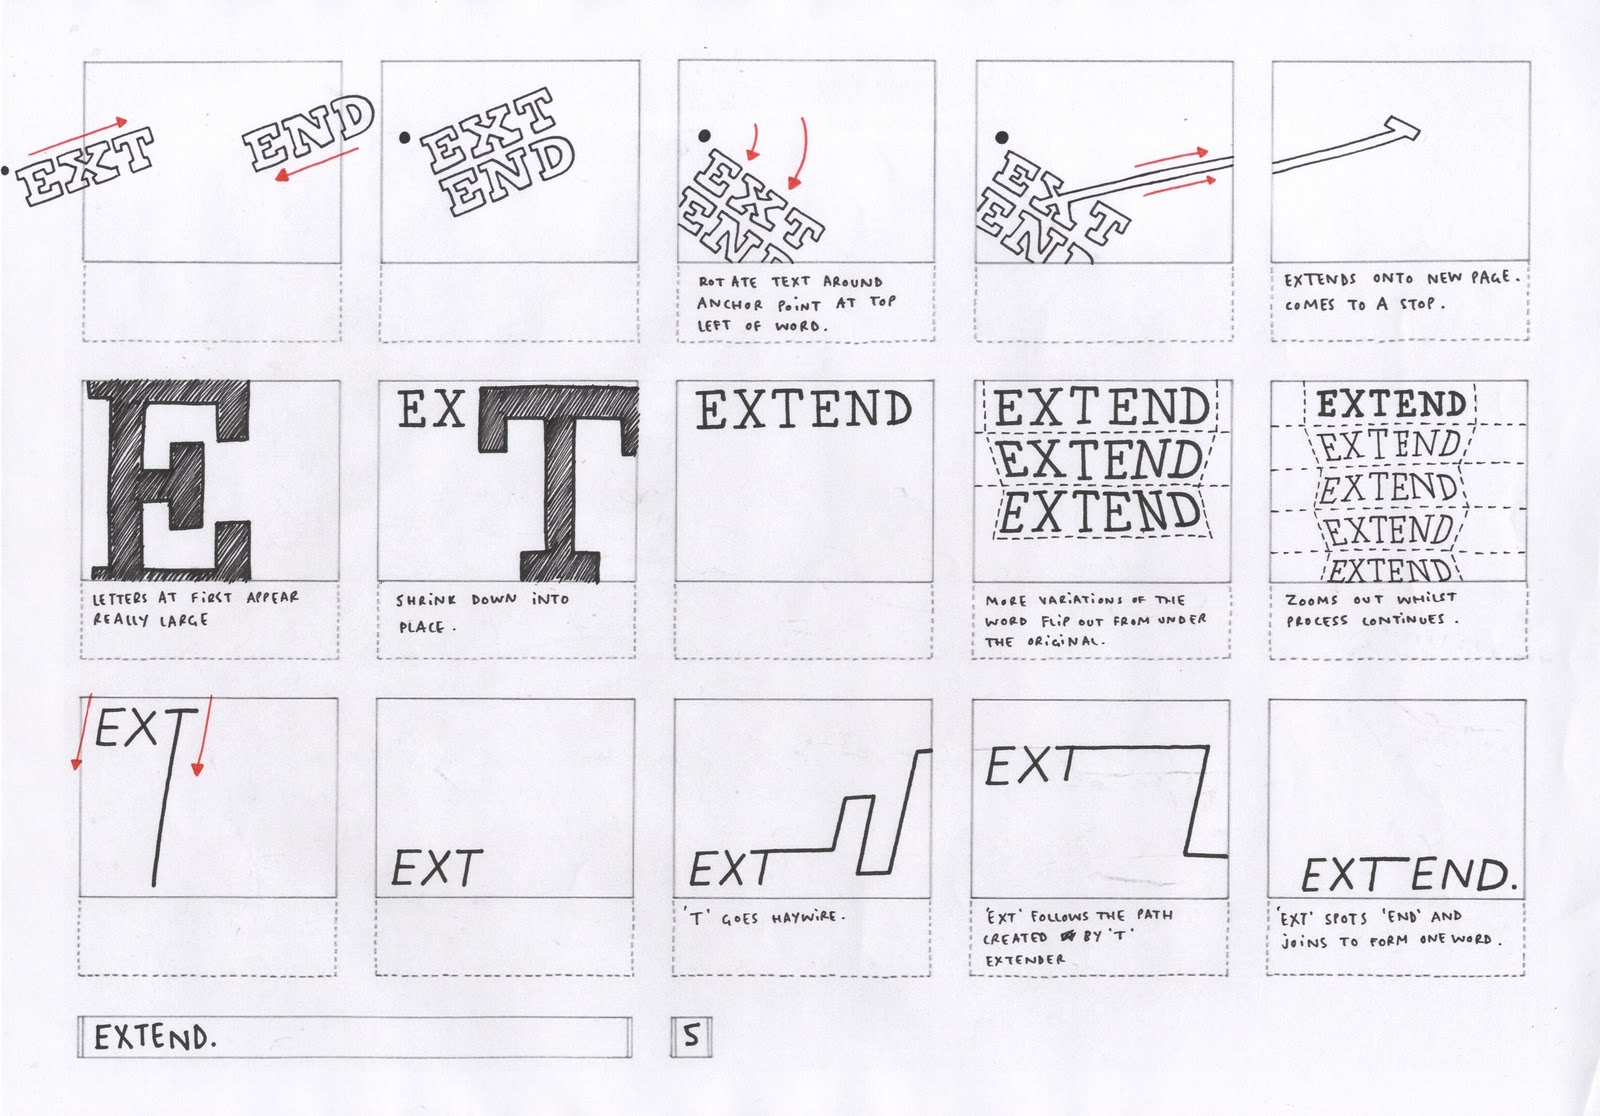 EXT
END
EXT
END
EXT
END
EXT
END
ROTATE TEXT AROUND
ANCHOR POINT AT TOP
LEFT OF WORD.
EXTENDS ONTO NEW PAGE.
COMES TO A STOP.
E
EXT
EXTEND
EXTEND
EXTEND
EXTEND
EXTEND
EXTEND
EXTEND
EXTEND
EXTEND
LETTERS AT FIRST APPEAR
REALLY LARGE
SHRINK DOWN INTO
PLACE.
MORE VARIATIONS OF THE
WORD FLIP OUT FROM UNDER
THE ORIGINAL.
ZOOMS OUT WHILST
PROCESS CONTINUES.
EXT
EXT
EXT
EXT
EXTEND.
'T' GOES HAYWIRE.
'EXT' FOLLOWS THE PATH
CREATED BY 'T'
EXTENDER
'EXT' SPOTS 'END' AND
JOINS TO FORM ONE WORD.
EXTEND.
5